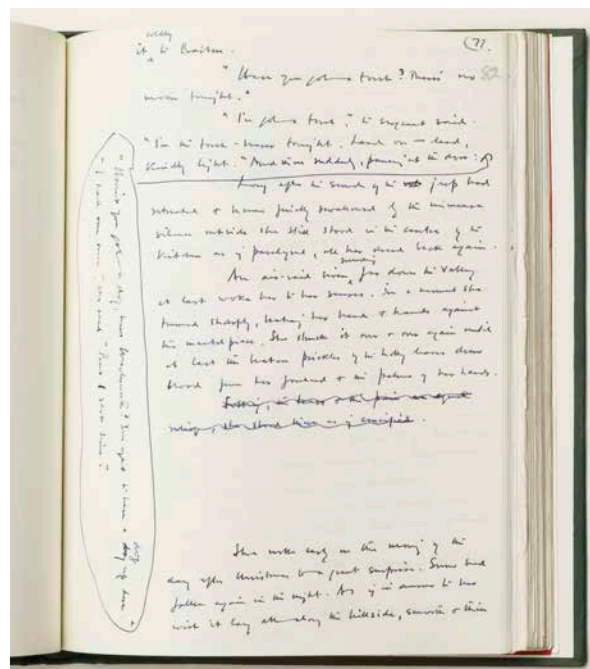 it to
(77.
82
"Have you got a torch? There's no
moon tonight."
"I've got a torch," the sergeant said.
"I'm the torch-bearer tonight. Lead on — lead,
kindly light." And then suddenly, pausing at the door:
Long after the sounds of the jeep had
retreated & been finally swallowed by the immense
silence outside she still stood in the centre of the
kitchen as if paralysed, all her dread back again.
sounding
An air-raid siren, far down the valley
at last woke her to her senses. In a moment she
turned sharply, beating her head & hands against
the mantelpiece. She struck it over & over again until
at last the beaten prickles of the holly leaves drew
blood from her forehead & the palms of her hands.
she stood there as if crucified.
She woke early on the morning of the
day after Christmas to a great surprise. Snow had
fallen again in the night. As if in answer to her
wish it lay all along the hillside, smooth & thin
"Haven't you got a dog, Miss
You ought to have a dog up here."
"I had one once," she said.